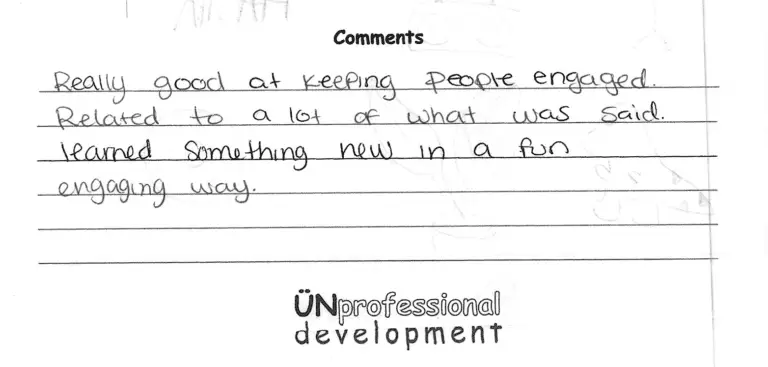 Comments
Really good at keeping people engaged.
Related to a lot of what was said.
learned something new in a fun
engaging way.
ÜNprofessional
development